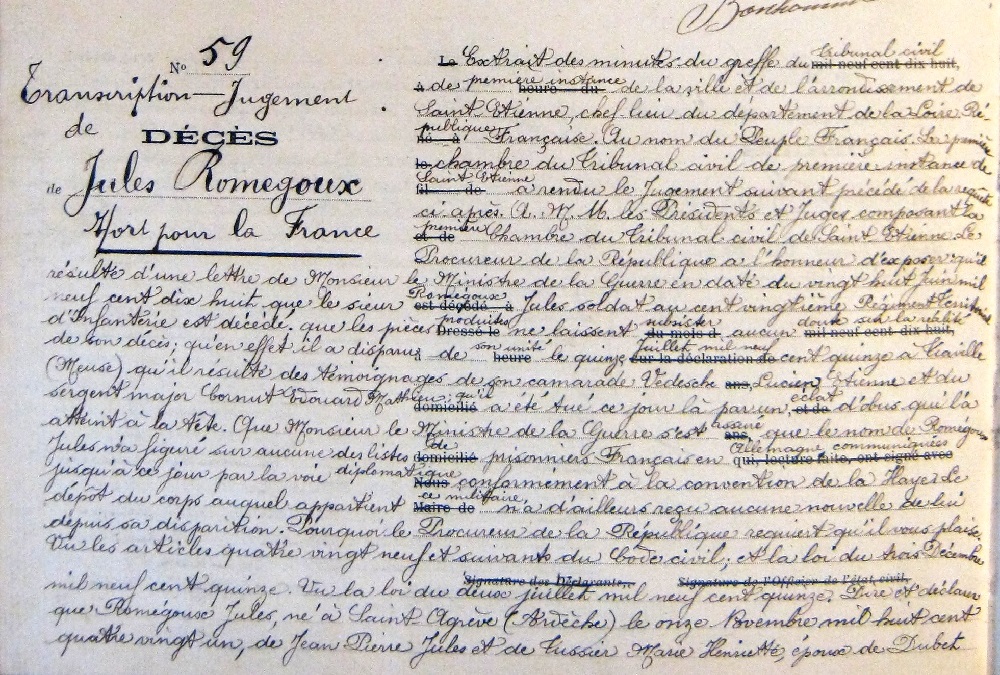 Bonhomme
N° 59
Transcription—Jugement
de
DÉCÈS
de Jules Romegoux
Mort pour la France
Le Extrait des minutes du greffe du tribunal civil mil neuf cent dix huit,
à de première instance heure du de la ville et de l'arrondissement de
Saint Etienne, chef lieu du département de la Loire Ré-
publique né à Française. Au nom du Peuple Français. La première
le chambre du Tribunal civil de première instance de
Saint Etienne fil de a rendu le Jugement suivant précédé de la requête
ci après. A. M. M. les Présidents et Juges composant la
première et de Chambre du Tribunal civil de Saint Etienne. Le
Procureur de la République a l'honneur d'exposer qu'il
résulte d'une lettre de Monsieur le Ministre de la Guerre en date du vingt huit Juin mil
neuf cent dix huit, que le sieur Romegoux est décédé à Jules soldat au cent vingtième Régiment Territorial
d'Infanterie est décédé. que les pièces produites Dressé le ne laissent subsister du mois d aucun doute sur la réalité mil neuf cent dix huit,
de son décès; qu'en effet il a disparu de son unité heure le quinze Juillet mil neuf sur la déclaration de cent quinze à
(Meuse) qu'il résulte des témoignages de son camarade Vedesche ans, Lucien, Etienne et du
sergent major Cornut Edouard Matthieu, qu'il domicilié a été tué ce jour là par un éclat et de d'obus qui l'a
atteint à la tête. Que Monsieur le Ministre de la Guerre s'est assuré ans, que le nom de Romegoux
Jules n'a figuré sur aucune des listes de domicilié prisonniers Français en Allemagne communiquées qui, lecture faite, ont signé avec
jusqu'à ce jour par la voie diplomatique Nous conformément à la convention de la Haye. Le
dépôt du corps auquel appartient ce militaire, Maire de n'a d'ailleurs reçu aucune nouvelle de lui
depuis sa disparition. Pourquoi le Procureur de la République requiert qu'il vous plaise
Vu les articles quatre vingt neuf et suivants du Code civil; et la loi du trois Décembre
Signature des déclarants. Signature de l'Officier de l'état civil,
mil neuf cent quinze. Vu la loi du deux juillet mil neuf cent quinze. Dire et déclarer
que Romegoux Jules, né à Saint Agrève (Ardèche) le onze Novembre mil huit cent
quatre vingt un, de Jean Pierre Jules et de Tussier Marie Henriette, époux de Dubet